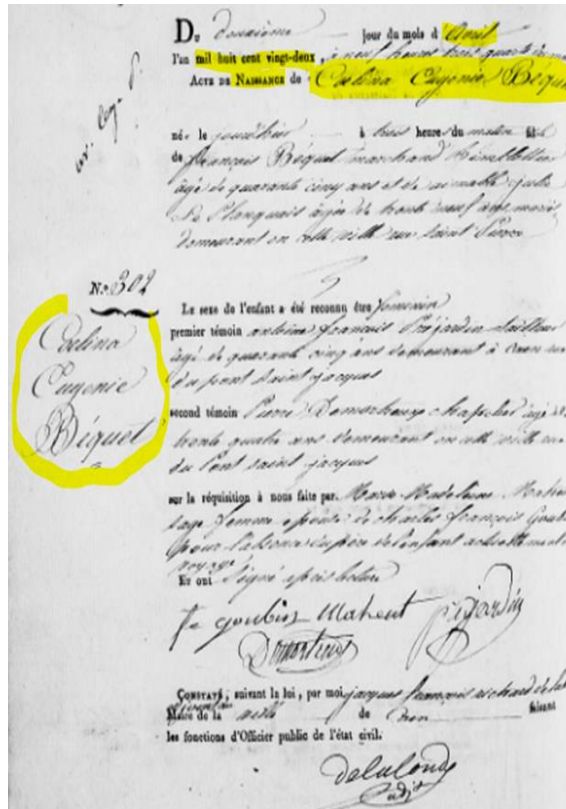 Du douzième jour du mois d'Avril
l'an mil huit cent vingt-deux, à neuf heures trois quarts du
ACTE DE NAISSANCE de Coelina Eugenie Béquet
née le jour d'hier à trois heures du matin fille
de françois Béquet marchand
âgé de quarante cinq ans et de aimable julie
Le Planquais âgée de trente neuf ans mariés
demeurant en cette ville rue saint Pierre
No. 302
Coelina
Eugenie
Béquet
Le sexe de l'enfant a été reconnu être feminin
premier témoin antoine francois Préjardin tailleur
âgé de quarante cinq ans demeurant à Caen rue
du pont saint jacques
second témoin Pierre chapelier âgé de
trente quatre ans demeurant en cette ville rue
du Pont saint jacques
sur la réquisition à nous faite par Marie Madeleine
sage femme epouse de charles françois
pour l'absence du père de l'enfant actuellement
voyage
Et ont signé après lecture
fe goubin Maheut préjardin
CONSTATÉ, suivant la loi, par moi jacques françois
Maire de la ville de Caen faisant
les fonctions d'Officier public de l'état civil.
delalonde
adjt